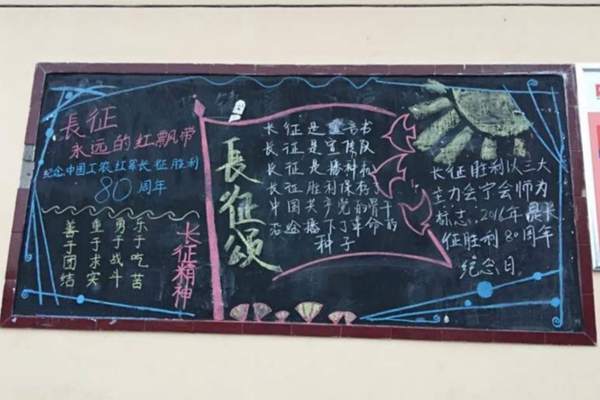 長征
永远的红飘带
纪念中国工农红军长征胜利
80周年
乐于吃苦
勇于战斗
重于求实
善于团结
长征精神
長征颂
长征是宣言书
长征是宣传队
长征是播种机
长征胜利保存
中国共产党的骨干
沿途播下了革命的
种子
长征胜利以三大
主力会宁会师为
标志、2016年是长
征胜利80周年
纪念日。